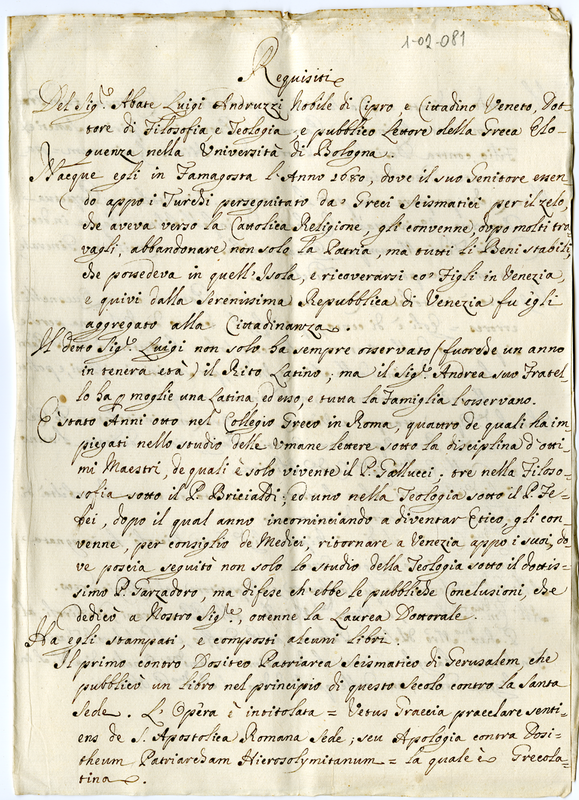 1-02-081
Requisiti
Del Sig.e Abate Luigi Andruzzi Nobile di Cipro e Cittadino Veneto, Dot-
tore di Filosofia e Teologia, e pubblico Lettore della Greca Elo-
quenza nella Università di Bologna.
Nacque egli in Famagosta l'Anno 1680, dove il suo Genitore essen
do appo i Turchi perseguitato da' Greci Scismatici per il zelo,
che aveva verso la Cattolica Religione, gli convenne, dopo molti tra
vagli, abbandonare non solo la Patria, ma tutti li Beni stabili,
che possedeva in quell'Isola, e ricoverarsi co' Figli in Venezia,
e quivi dalla Serenissima Repubblica di Venezia fu egli
aggregato alla Cittadinanza.
Il detto Sig.e Luigi non solo ha sempre osservato (fuorche un anno
in tenera età) il Rito Latino; ma il Sig.e Andrea suo Fratel-
lo ha p moglie una Latina, ed esso, e tutta la Famiglia l'osservano.
È stato Anni otto nel Collegio Greco in Roma, quattro de quali ha im
piegati nello studio delle Umane lettere sotto la disciplina d'otti-
mi Maestri, de quali è solo vivente il P. Gallucci: tre nella Filoso-
sofia sotto il P. Bricialdi, ed uno nella Teologia sotto il P. Fe-
dei, dopo il qual anno incominciando a diventar Etico, gli con-
venne, per consiglio de Medici, ritornare a Venezia appo i suoi, do
ve poscia seguitò non solo lo studio della Teologia sotto il dottis-
simo P. Garzadoro, ma difese ch'ebbe le pubbliche Conclusioni, che
dedicò a Nostro Sig.re, ottenne la Laurea Dottorale.
Ha egli stampati, e composti alcuni libri.
Il primo contro Dositeo Patriarca Scismatico di Gerusalem, che
pubblicò un libro nel principio di questo Secolo contro la Santa
Sede. L'Opera è intitolata = Vetus Graecia praeclare senti-
ens de S. Apostolica Romana Sede; seu Apologia contra Dosi-
theum Patriarcham Hierosolymitanum = la quale è Grecola-
tina.